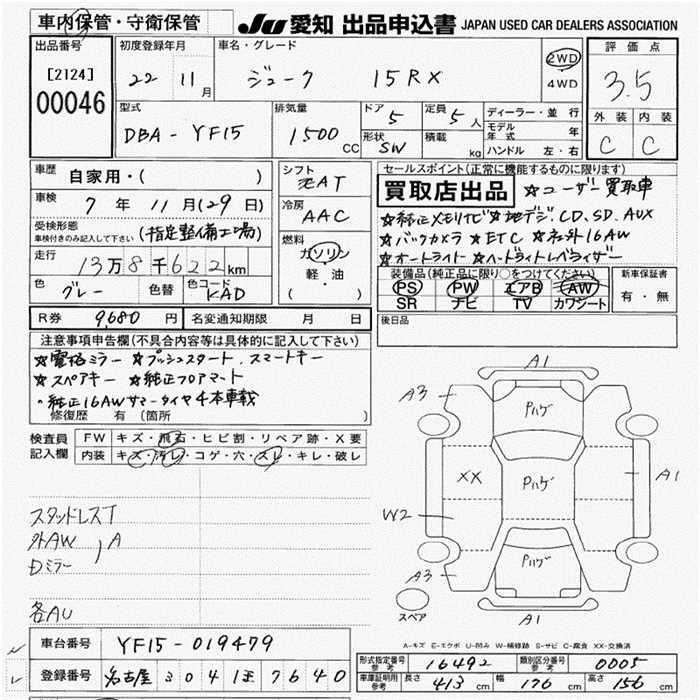 車内保管・守衛保管
JU 愛知 出品申込書 JAPAN USED CAR DEALERS ASSOCIATION
出品番号
[2124]
00046
初度登録年月
22 11月
車名・グレード
ジューク 15RX
2WD
4WD
評価点
3.5
外装 内装
C C
型式
DBA-YF15
排気量
1500cc
ドア 5
形状 SW
定員 5人
積載 kg
ディーラー・並行
モデル年式 年
ハンドル 左・右
車歴 自家用・( )
車検 7年 11月(29日)
受検形態
車検付きのみ記入して下さい (指定整備工場)
走行 13万8千622km
色 グレー 色替 色コード KAD
シフト
冷房 AAC
燃料
ガソリン
軽・油
( )
セールスポイント(正常に機能するものに限ります)
買取店出品 ☆ユーザー買取車
☆純正メモリナビ☆地デジ、CD、SD、AUX
☆バックカメラ ☆ETC ☆社外16AW
☆オートライト☆ヘッドライトレベライザー
装備品(純正品に限り○をつけてください)
PS PW エアB AW
SR ナビ TV カワシート
新車保証書
有・無
R券 9,680円 名変通知期限 月 日
後日品
注意事項申告欄(不具合内容等は具体的に記入して下さい)
☆電格ミラー ☆プッシュスタート、スマートキー
☆スペアキー ☆純正フロアマット
・純正16AWサマータイヤ4本車載
修復歴 有 (箇所
検査員記入欄
FW キズ・飛石・ヒビ割・リペア跡・X要
内装 キズ・汚レ・コゲ・穴・スレ・キレ・破レ
スタッドレスT
外AW
Dミラー
A
各AU
A1
A3
Pハゲ
XX
Pハゲ
A1
W2
Pハゲ
A3
A1
スペア
A-キズ E-エクボ U-凹み W-補修跡 S-サビ C-腐食 XX-交換済
車台番号 YF15-019479
登録番号 名古屋 304 7640
形式指定番号 参考 16492 類別区分番号 参考 0005
車庫証明用 参考 長さ 413cm 幅 176cm 高さ 156cm